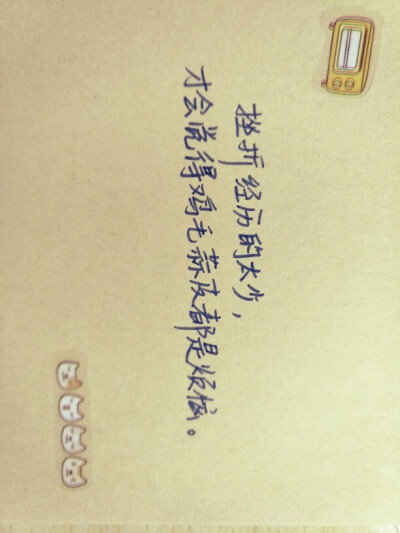 挫折经历的太少，
才会觉得鸡毛蒜皮都是烦恼。